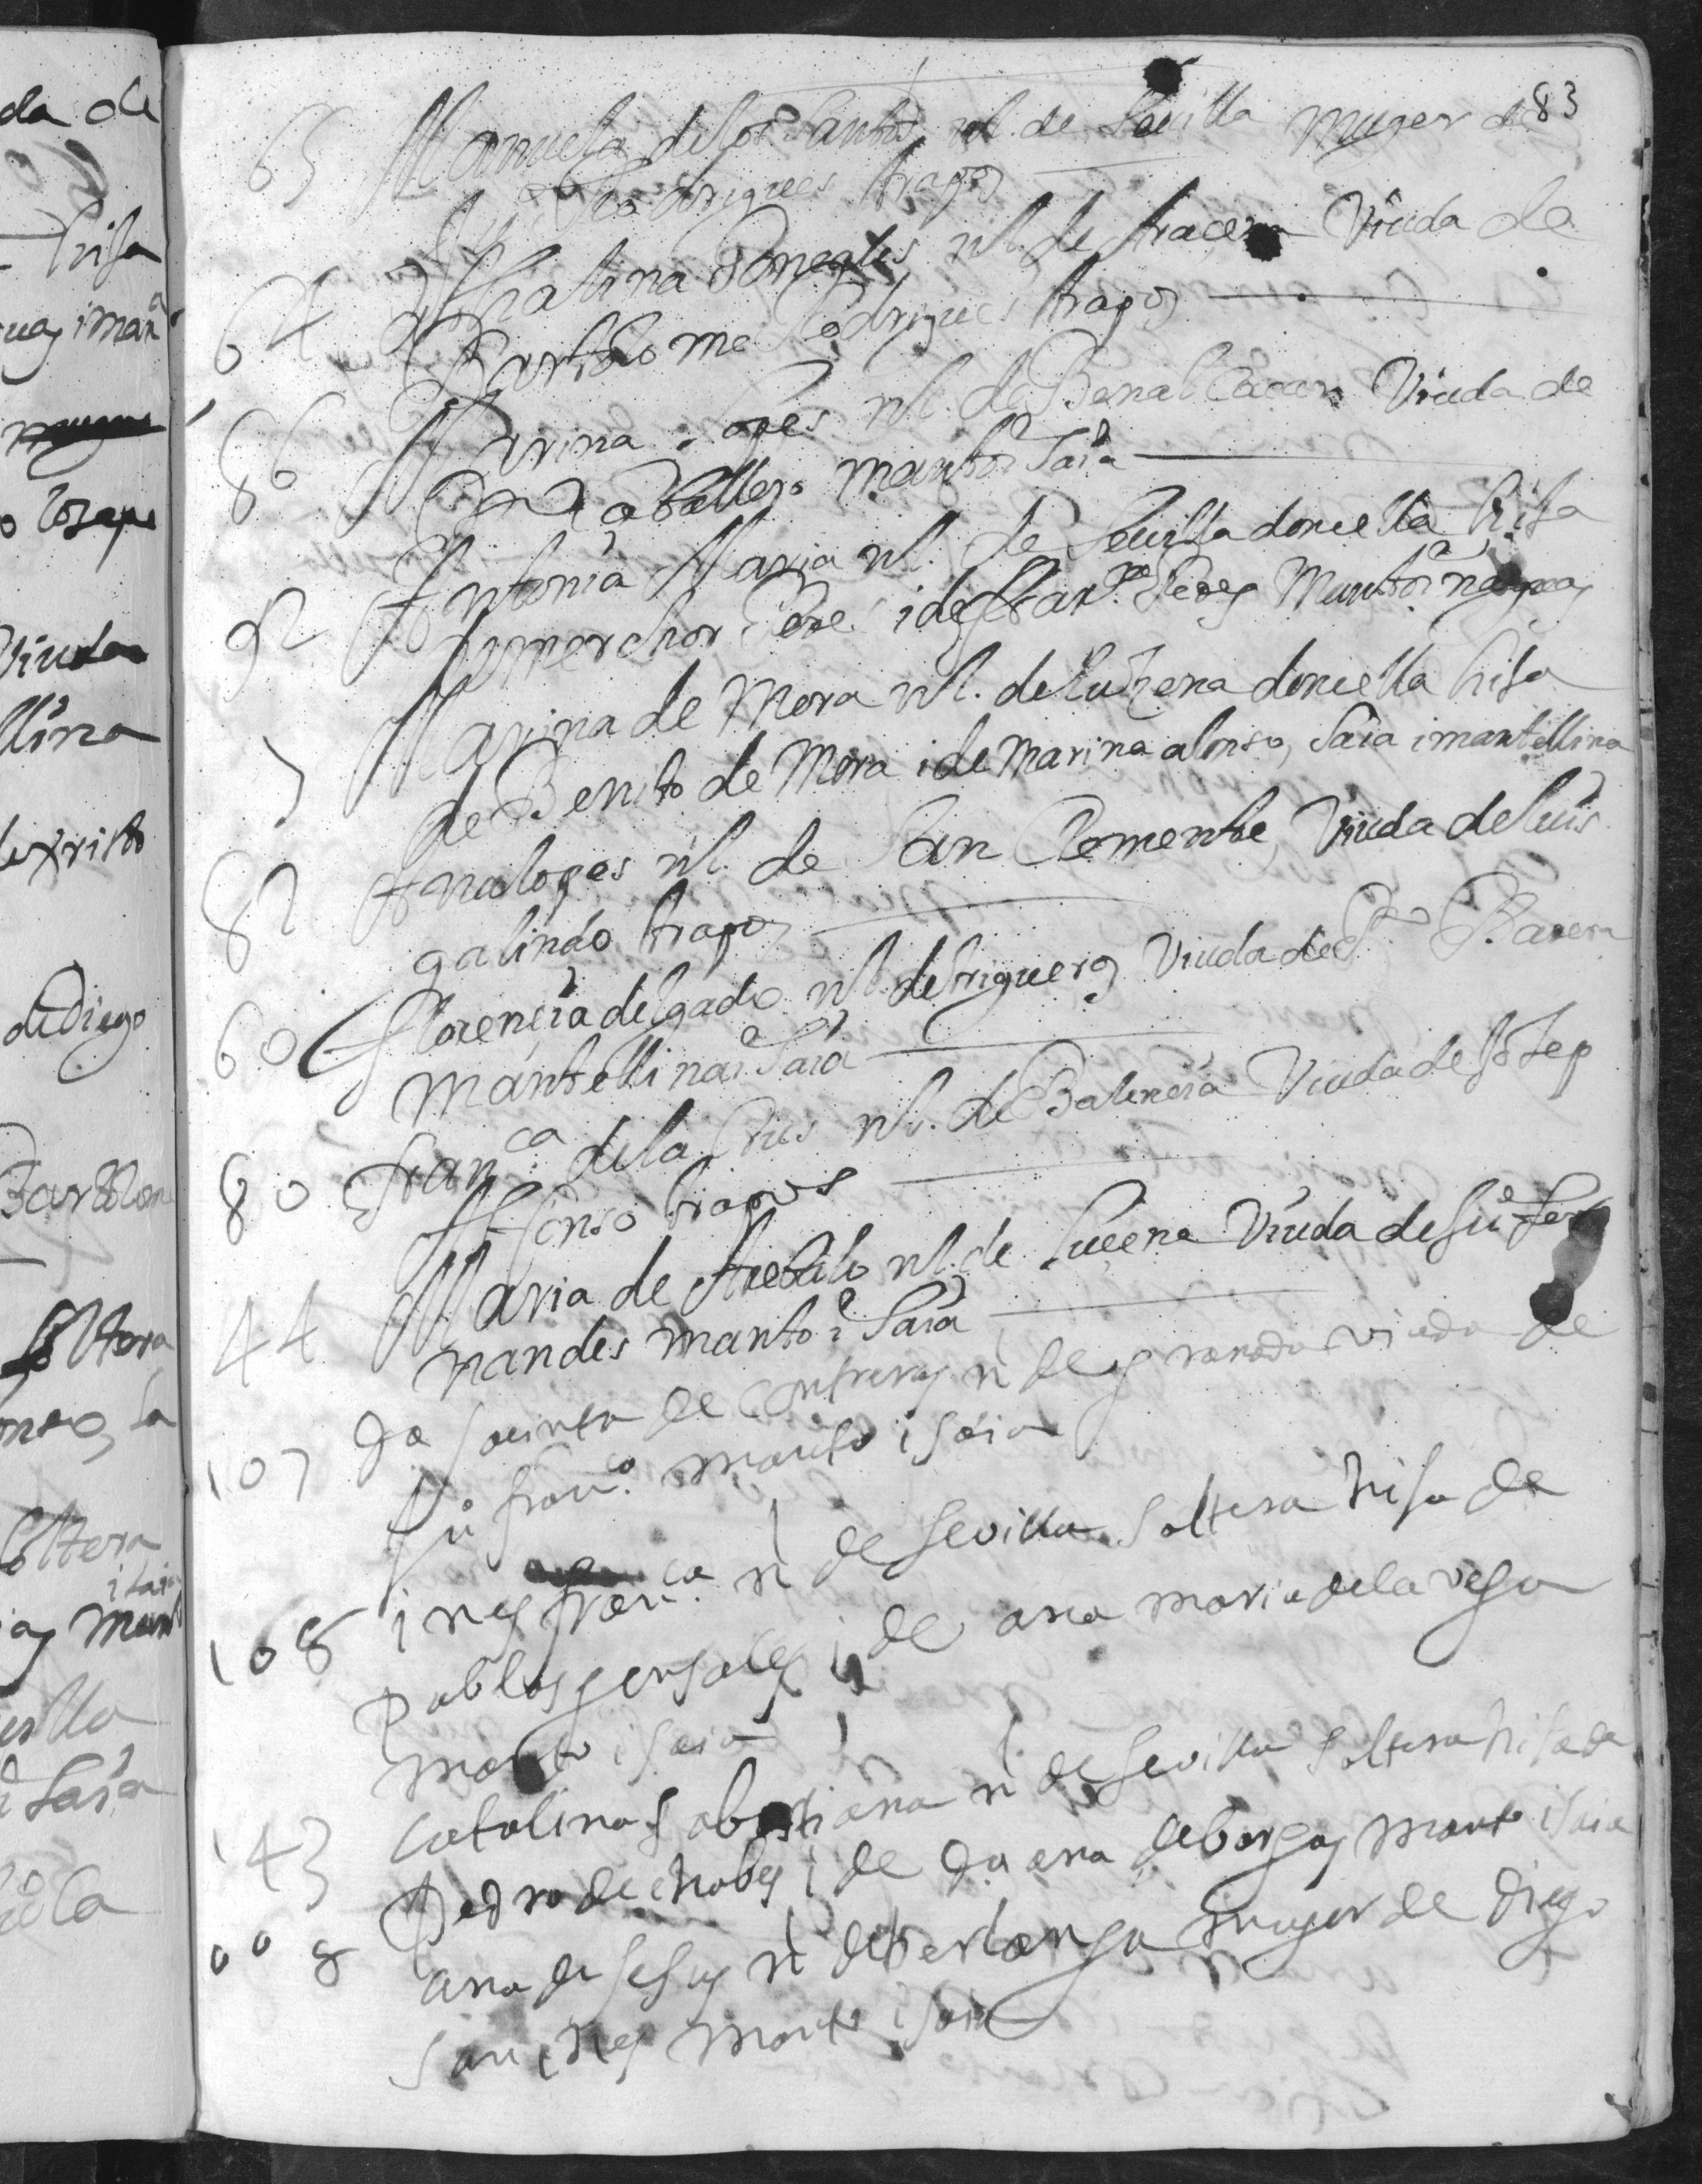 83
65 Manuela de los Santos nl. de Sevilla muger de
Rodrigues trapos
64 Chatalina Gonsales nl. de Aracena Viuda de
Bartolome Rodrigues trapos
86 Marina Lopes nl. de Benalcacar Viuda de
Caballero manto i saia
92 Antonia Maria nl. de Sevilla doncella hija
de merchor Peres i de Fran.ca Peres Manto i
7 Marina de Mora nl. de Luzena doncella hija
de Benito de Mora i de Marina alonso, saia i mantellina
82 Ana lopes nl. de San Clemente, Viuda de luis
galindo trapos
60 Florencia delgado nl. de trigueros Viuda de P.o Barera
mantellina i saia
80 Fran.ca de la Crus nl. de Balencia Viuda de Josep
Alfonso trapos
44 Maria de Arebalo nl. de Lucena Viuda de Ju.o Fer
nandes manto i Saia
107 Da Jacinta de Contreras n de granada viuda de
Ju.o fran.co manto i saia
168 ines fran.ca nl de Sevilla soltera hija de
Pablos gonsales i de ana maria de la vega
manto i saia
143 Catalina Sabastiana nl de Sevilla soltera hija de
Pedro de chabes i de Da ana de borgas manto i saia
008 ana de Jesus nl de berlanga muger de diego
sanches manto i saia
da de
hija
muger
Josape
Viuda
llina
de xristo
de Diego
Bartolome
soltera
soltera
i saia